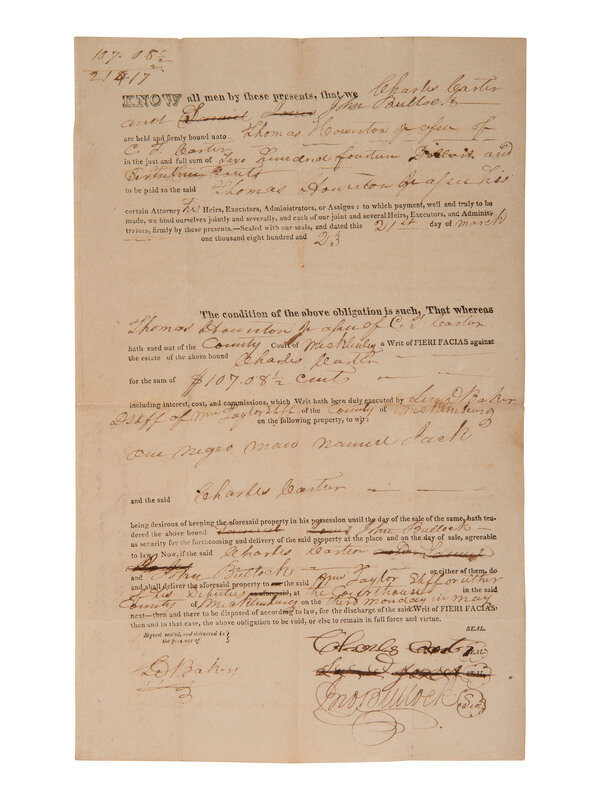 107.08½
214 17
KNOW all men by these presents, that we Charles Carter
and John Bullock
are held and firmly bound unto Thomas Howerton Jr assee of
C. T. Carter
in the just and full sum of Two Hundred fourteen Dollars and
Seventeen Cents
to be paid to the said Thomas Howerton Jr assee his
certain Attorney his Heirs, Executors, Administrators, or Assigns: to which payment, well and truly to be
made, we bind ourselves jointly and severally, and each of our joint and several Heirs, Executors, and Adminis-
trators, firmly by these presents.—Sealed with our seals, and dated this 21st day of March
one thousand eight hundred and 23
The condition of the above obligation is such, That whereas
Thomas Howerton Jr assee of C. T. Carter
hath sued out of the County Court of Mecklenburg a Writ of FIERI FACIAS against
the estate of the above bound Charles Carter
for the sum of $107.08½ Cents
including interest, cost, and commissions, which Writ hath been duly executed by D Baker
D Shff of Wm Taylor Shff of the County of Mecklenburg
on the following property, to wit:
one negro man named Jack
and the said Charles Carter
being desirous of keeping the aforesaid property in his possession until the day of sale of the same, hath ten-
dered the above bound John Bullock
as security for the forthcoming and delivery of the said property at the place and on the day of sale, agreeable
to law: Now, if the said Charles Carter
and John Bullock or either of them, do
and shall deliver the aforesaid property to the said Wm Taylor Shff or either
of his Deputies aforesaid, at the Courthouse in the said
County of Mecklenburg on the third monday in may
next—then and there to be disposed of according to law, for the discharge of the said Writ of FIERI FACIAS:
then and in that case, the above obligation to be void, or else to remain in full force and virtue.
Signed sealed, and delivered in
the presence of
SEAL.
Charles Carter SEAL.
D Baker
SEAL
Jno Bullock Seal